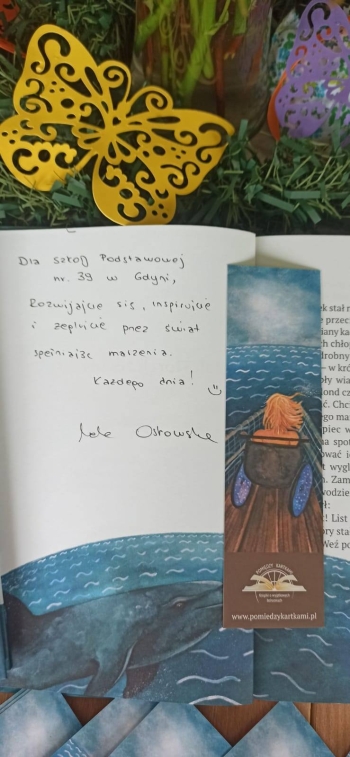 Dla Szkoły Podstawowej
nr. 39 w Gdyni,
Rozwijajcie się, inspirujcie
i żeglujcie przez świat
spełniając marzenia.
Każdego dnia!
Ostrowska
POMIĘDZY KARTKAMI
www.pomiedzykartkami.pl
stał
przec
iany ka
ch chło
drobny
– w kró
ły wia
ond cz
ć. Chc
go ma
piec w
a spot
ować i
t wygl
. Zam
wodzie
ł:
! List
ry sta
Weź po